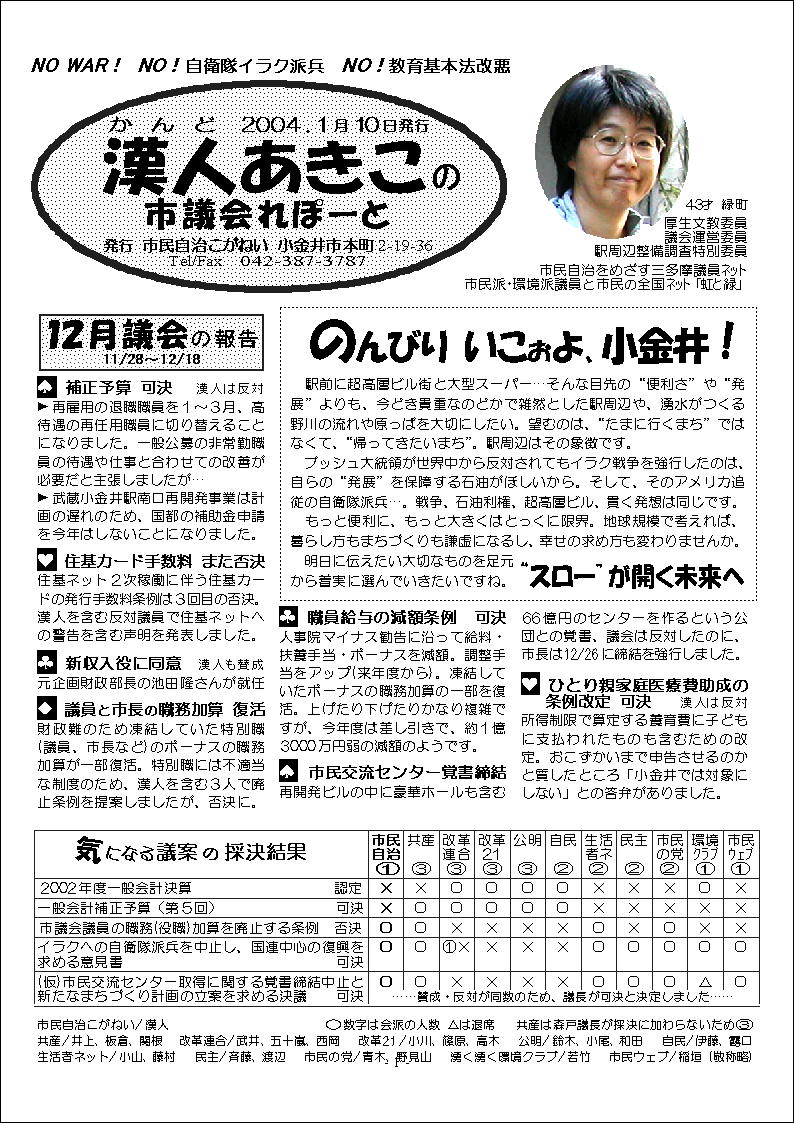 NO WAR！ NO！自衛隊イラク派兵 NO！教育基本法改悪
かんど 2004．1月10日発行
漢人あきこの
市議会れぽーと
発行 市民自治こがねい 小金井市本町2-19-36
Tel/Fax 042-387-3787
43才 緑町
厚生文教委員
議会運営委員
駅周辺整備調査特別委員
市民自治をめざす三多摩議員ネット
市民派・環境派議員と市民の全国ネット「虹と緑」
12月議会の報告
11/28～12/18
♠ 補正予算 可決 漢人は反対
►再雇用の退職職員を１～３月、高
待遇の再任用職員に切り替えること
になりました。一般公募の非常勤職
員の待遇や仕事と合わせての改善が
必要だと主張しましたが…
►武蔵小金井駅南口再開発事業は計
画の遅れのため、国都の補助金申請
を今年はしないことになりました。
♥ 住基カード手数料 また否決
住基ネット２次稼働に伴う住基カー
ドの発行手数料条例は３回目の否決。
漢人を含む反対議員で住基ネットへ
の警告を含む声明を発表しました。
♣ 新収入役に同意 漢人も賛成
元企画財政部長の池田隆さんが就任
♦ 議員と市長の職務加算 復活
財政難のため凍結していた特別職
(議員、市長など)のボーナスの職務
加算が一部復活。特別職には不適当
な制度のため、漢人を含む３人で廃
止条例を提案しましたが、否決に。
のんびり いこぉよ、小金井！
駅前に超高層ビル街と大型スーパー…そんな目先の“便利さ”や“発
展”よりも、今どき貴重なのどかで雑然とした駅周辺や、湧水がつくる
野川の流れや原っぱを大切にしたい。望むのは、“たまに行くまち”では
なくて、“帰ってきたいまち”。駅周辺はその象徴です。
ブッシュ大統領が世界中から反対されてもイラク戦争を強行したのは、
自らの“発展”を保障する石油がほしいから。そして、そのアメリカ追
従の自衛隊派兵…。戦争、石油利権、超高層ビル、貫く発想は同じです。
もっと便利に、もっと大きくはとっくに限界。地球規模で考えれば、
暮らし方もまちづくりも謙虚になるし、幸せの求め方も変わりませんか。
明日に伝えたい大切なものを足元
から着実に選んでいきたいですね。
“スロー”が開く未来へ
♣ 職員給与の減額条例 可決
人事院マイナス勧告に沿って給料・
扶養手当・ボーナスを減額。調整手
当をアップ(来年度から)。凍結して
いたボーナスの職務加算の一部を復
活。上げたり下げたりかなり複雑で
すが、今年度は差し引きで、約１億
3000万円弱の減額のようです。
♠ 市民交流センター覚書締結
再開発ビルの中に豪華ホールも含む
66億円のセンターを作るという公
団との覚書、議会は反対したのに、
市長は12/26に締結を強行しました。
♥ ひとり親家庭医療費助成の
条例改定 可決 漢人は反対
所得制限で算定する養育費に子ども
に支払われたものも含むための改
定。おこずかいまで申告させるのか
と質したところ「小金井では対象に
しない」との答弁がありました。
気になる議案の採決結果 市民自治① 共産③ 改革連合③ 改革21③ 公明③ 自民② 生活者ネ② 民主② 市民の党② 環境クラブ① 市民ウェブ①
2002年度一般会計決算 認定 × × ○ ○ ○ ○ × × × ○ ×
一般会計補正予算（第５回） 可決 × ○ ○ ○ ○ ○ × × × × ×
市議会議員の職務(役職)加算を廃止する条例 否決 ○ ○ × × × × ○ × ○ × ×
イラクへの自衛隊派兵を中止し、国連中心の復興を
求める意見書 可決 ○ ○ ①× × × × ○ ○ ○ ○ ○
(仮)市民交流センター取得に関する覚書締結中止と ○ ○ × × × × ○ ○ ○ △ ○
新たなまちづくり計画の立案を求める決議 可決 ……賛成・反対が同数のため、議長が可決と決定しました……
市民自治こがねい/漢人 ○数字は会派の人数 △は退席 共産は森戸議長が採決に加わらないため③
共産/井上、板倉、関根 改革連合/武井、五十嵐、西岡 改革21/小川、篠原、高木 公明/鈴木、小尾、和田 自民/伊藤、露口
生活者ネット/小山、藤村 民主/斉藤、渡辺 市民の党/青木、野見山 湧く湧く環境クラブ/若竹 市民ウェブ/稲垣（敬称略）
- 1 -